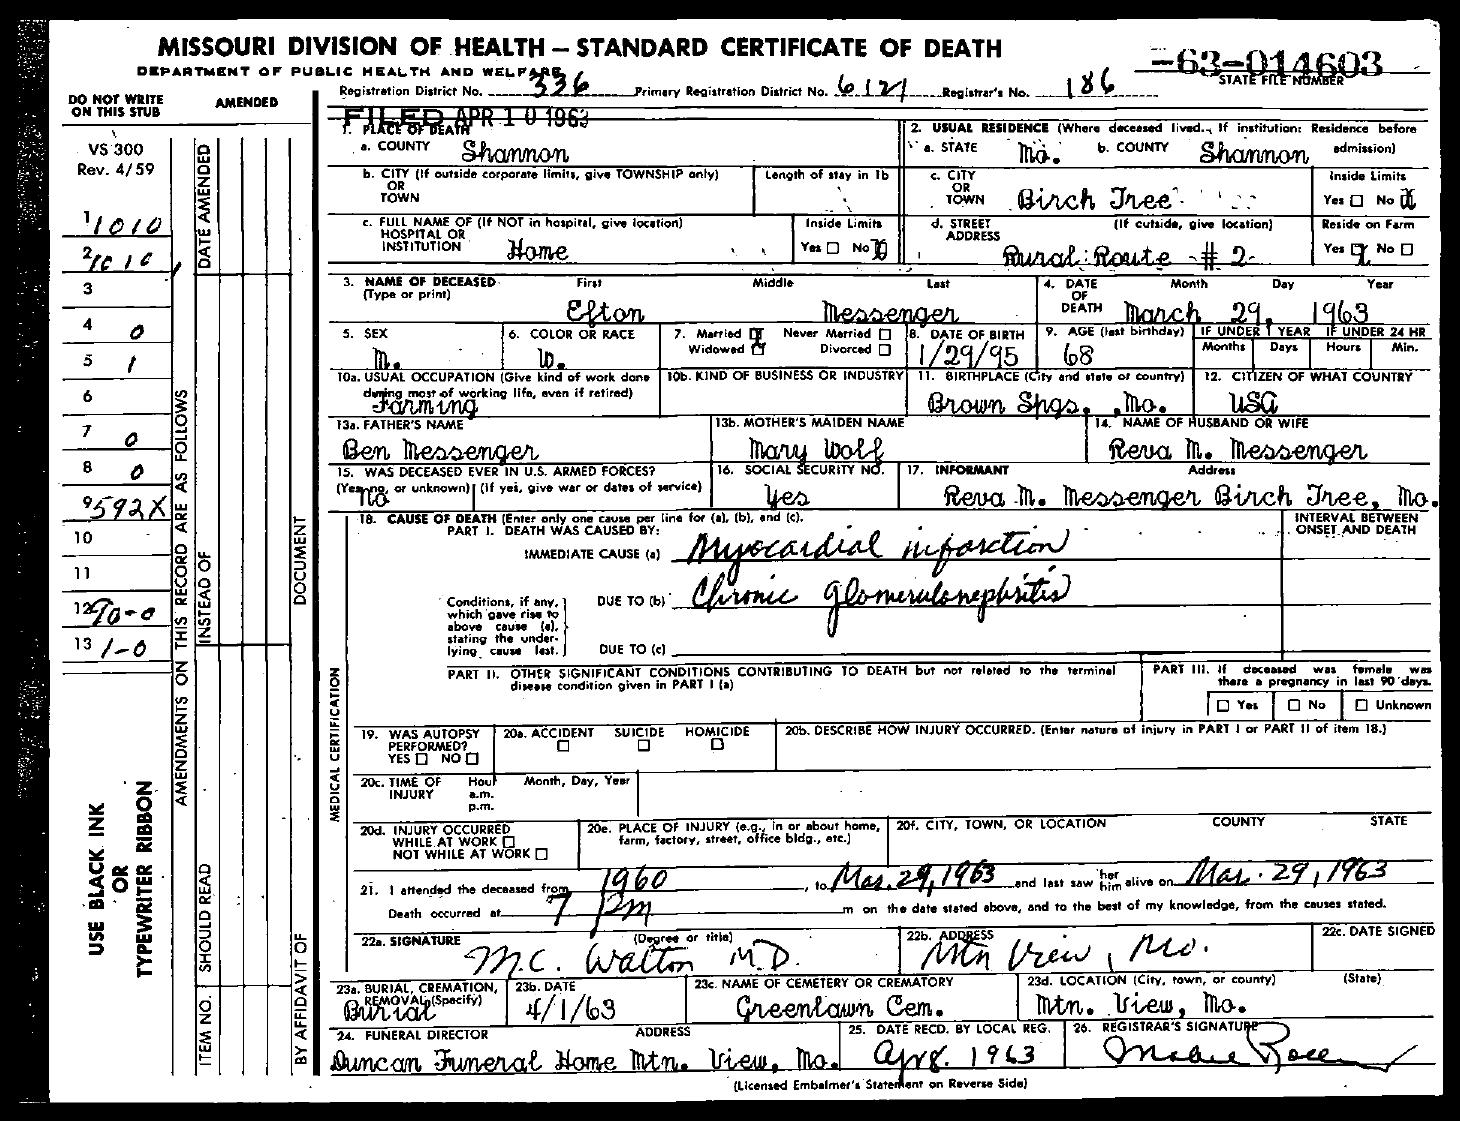 MISSOURI DIVISION OF HEALTH — STANDARD CERTIFICATE OF DEATH
DEPARTMENT OF PUBLIC HEALTH AND WELFARE
-63-014603
STATE FILE NUMBER
Registration District No. 336 Primary Registration District No. 6121 Registrar's No. 186
DO NOT WRITE
ON THIS STUB
AMENDED
FILED APR 10 1963
VS 300
Rev. 4/59
1 1010
2 1010
3
4 0
5 1
6
7 0
8 0
9 592X
10
11
12 90-0
13 1-0
USE BLACK INK
OR
TYPEWRITER RIBBON
AMENDMENTS ON THIS RECORD ARE AS FOLLOWS
DATE AMENDED
INSTEAD OF
SHOULD READ
ITEM NO.
DOCUMENT
BY AFFIDAVIT OF
MEDICAL CERTIFICATION
1. PLACE OF DEATH
a. COUNTY Shannon
2. USUAL RESIDENCE (Where deceased lived. If institution: Residence before
a. STATE Mo. b. COUNTY Shannon admission)
b. CITY (If outside corporate limits, give TOWNSHIP only)
OR
TOWN
Length of stay in 1b
c. CITY
OR
TOWN Birch Tree
Inside Limits
Yes ☐ No ☒
c. FULL NAME OF (If NOT in hospital, give location)
HOSPITAL OR
INSTITUTION Home
Inside Limits
Yes ☐ No ☒
d. STREET (If outside, give location)
ADDRESS Rural Route # 2
Reside on Farm
Yes ☒ No ☐
3. NAME OF DECEASED First Middle Last
(Type or print)
Efton Messenger
4. DATE Month Day Year
OF
DEATH March 29, 1963
5. SEX
M.
6. COLOR OR RACE
W.
7. Married ☒ Never Married ☐
Widowed ☐ Divorced ☐
8. DATE OF BIRTH
1/29/95
9. AGE (last birthday)
68
IF UNDER 1 YEAR IF UNDER 24 HR
Months Days Hours Min.
10a. USUAL OCCUPATION (Give kind of work done
during most of working life, even if retired)
Farming
10b. KIND OF BUSINESS OR INDUSTRY
11. BIRTHPLACE (City and state or country)
Brown Spgs., Mo.
12. CITIZEN OF WHAT COUNTRY
USA
13a. FATHER'S NAME
Ben Messenger
13b. MOTHER'S MAIDEN NAME
Mary Wolf
14. NAME OF HUSBAND OR WIFE
Reva M. Messenger
15. WAS DECEASED EVER IN U.S. ARMED FORCES?
(Yes, no, or unknown) (If yes, give war or dates of service)
no
16. SOCIAL SECURITY NO.
Yes
17. INFORMANT Address
Reva M. Messenger Birch Tree, Mo.
18. CAUSE OF DEATH (Enter only one cause per line for (a), (b), and (c).
PART I. DEATH WAS CAUSED BY:
INTERVAL BETWEEN
ONSET AND DEATH
IMMEDIATE CAUSE (a) Myocardial infarction
Conditions, if any,
which gave rise to
above cause (a),
stating the under-
lying cause last.
DUE TO (b) Chronic glomerulonephritis
DUE TO (c)
PART II. OTHER SIGNIFICANT CONDITIONS CONTRIBUTING TO DEATH but not related to the terminal
disease condition given in PART I (a)
PART III. If deceased was female was
there a pregnancy in last 90 days.
☐ Yes ☐ No ☐ Unknown
19. WAS AUTOPSY
PERFORMED?
YES ☐ NO ☐
20a. ACCIDENT SUICIDE HOMICIDE
☐ ☐ ☐
20b. DESCRIBE HOW INJURY OCCURRED. (Enter nature of injury in PART I or PART II of item 18.)
20c. TIME OF Hour Month, Day, Year
INJURY a.m.
p.m.
20d. INJURY OCCURRED
WHILE AT WORK ☐
NOT WHILE AT WORK ☐
20e. PLACE OF INJURY (e.g., in or about home,
farm, factory, street, office bldg., etc.)
20f. CITY, TOWN, OR LOCATION COUNTY STATE
21. I attended the deceased from 1960, to Mar. 29, 1963 and last saw her him alive on Mar. 29, 1963
Death occurred at 7 Pm m on the date stated above, and to the best of my knowledge, from the causes stated.
22a. SIGNATURE (Degree or title)
M.C. Walton M.D.
22b. ADDRESS
Mtn View, Mo.
22c. DATE SIGNED
23a. BURIAL, CREMATION,
REMOVAL (Specify)
Burial
23b. DATE
4/1/63
23c. NAME OF CEMETERY OR CREMATORY
Greenlawn Cem.
23d. LOCATION (City, town, or county) (State)
Mtn. View, Mo.
24. FUNERAL DIRECTOR ADDRESS
Duncan Funeral Home Mtn. View, Mo.
25. DATE RECD. BY LOCAL REG.
Apr 8. 1963
26. REGISTRAR'S SIGNATURE
(Licensed Embalmer's Statement on Reverse Side)